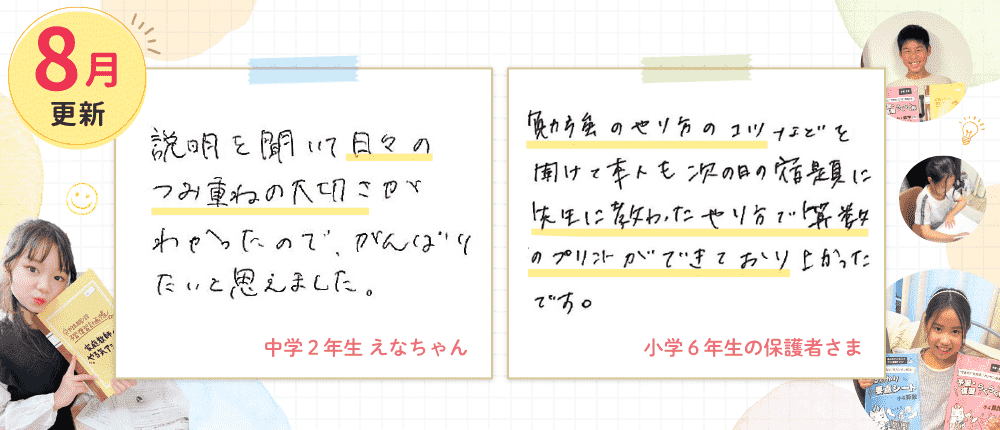 8月
更新
説明を聞いて日々の
つみ重ねの大切さが
わかったので、がんばり
たいと思えました。
中学2年生 えなちゃん
勉強のやり方のコツなどを
聞けて本人も次の日の宿題に
先生に教わったやり方で算数
のプリントができており上かった
です。
小学6年生の保護者さま
家庭教師の
やる気アシ
要点シート
小6算数